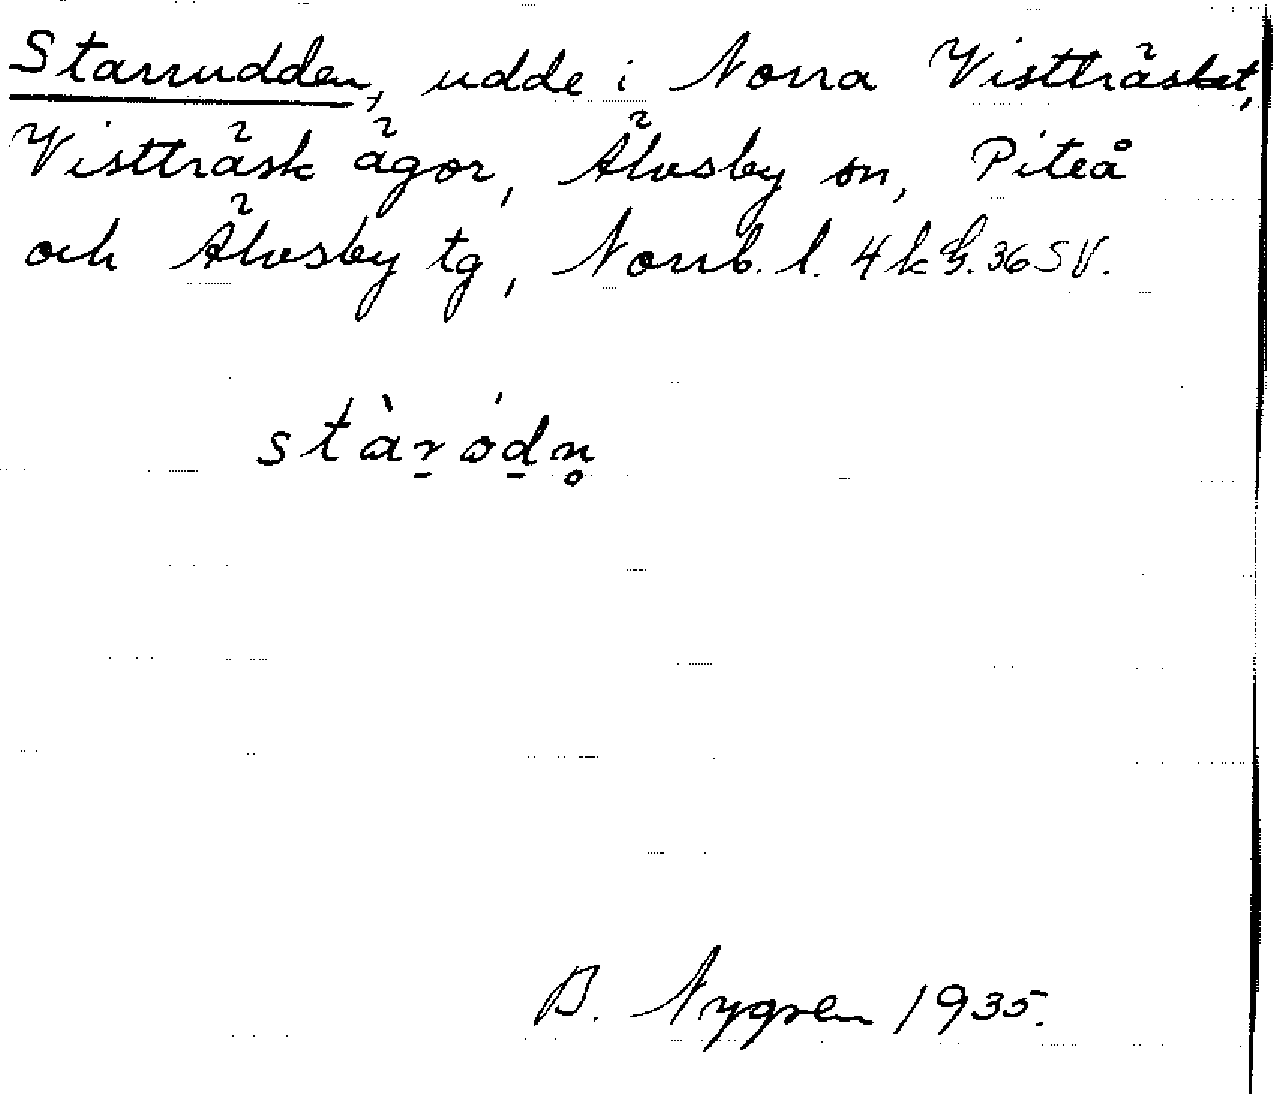 Starrudden, udde i Norra Vistträsket,
Vistträsk ägor, Älvsby sn, Piteå
och Älvsby tg, Norrb. l. 4 k G. 36 SV.
stàr̠ód̠n̥
B. Nygren 1935.